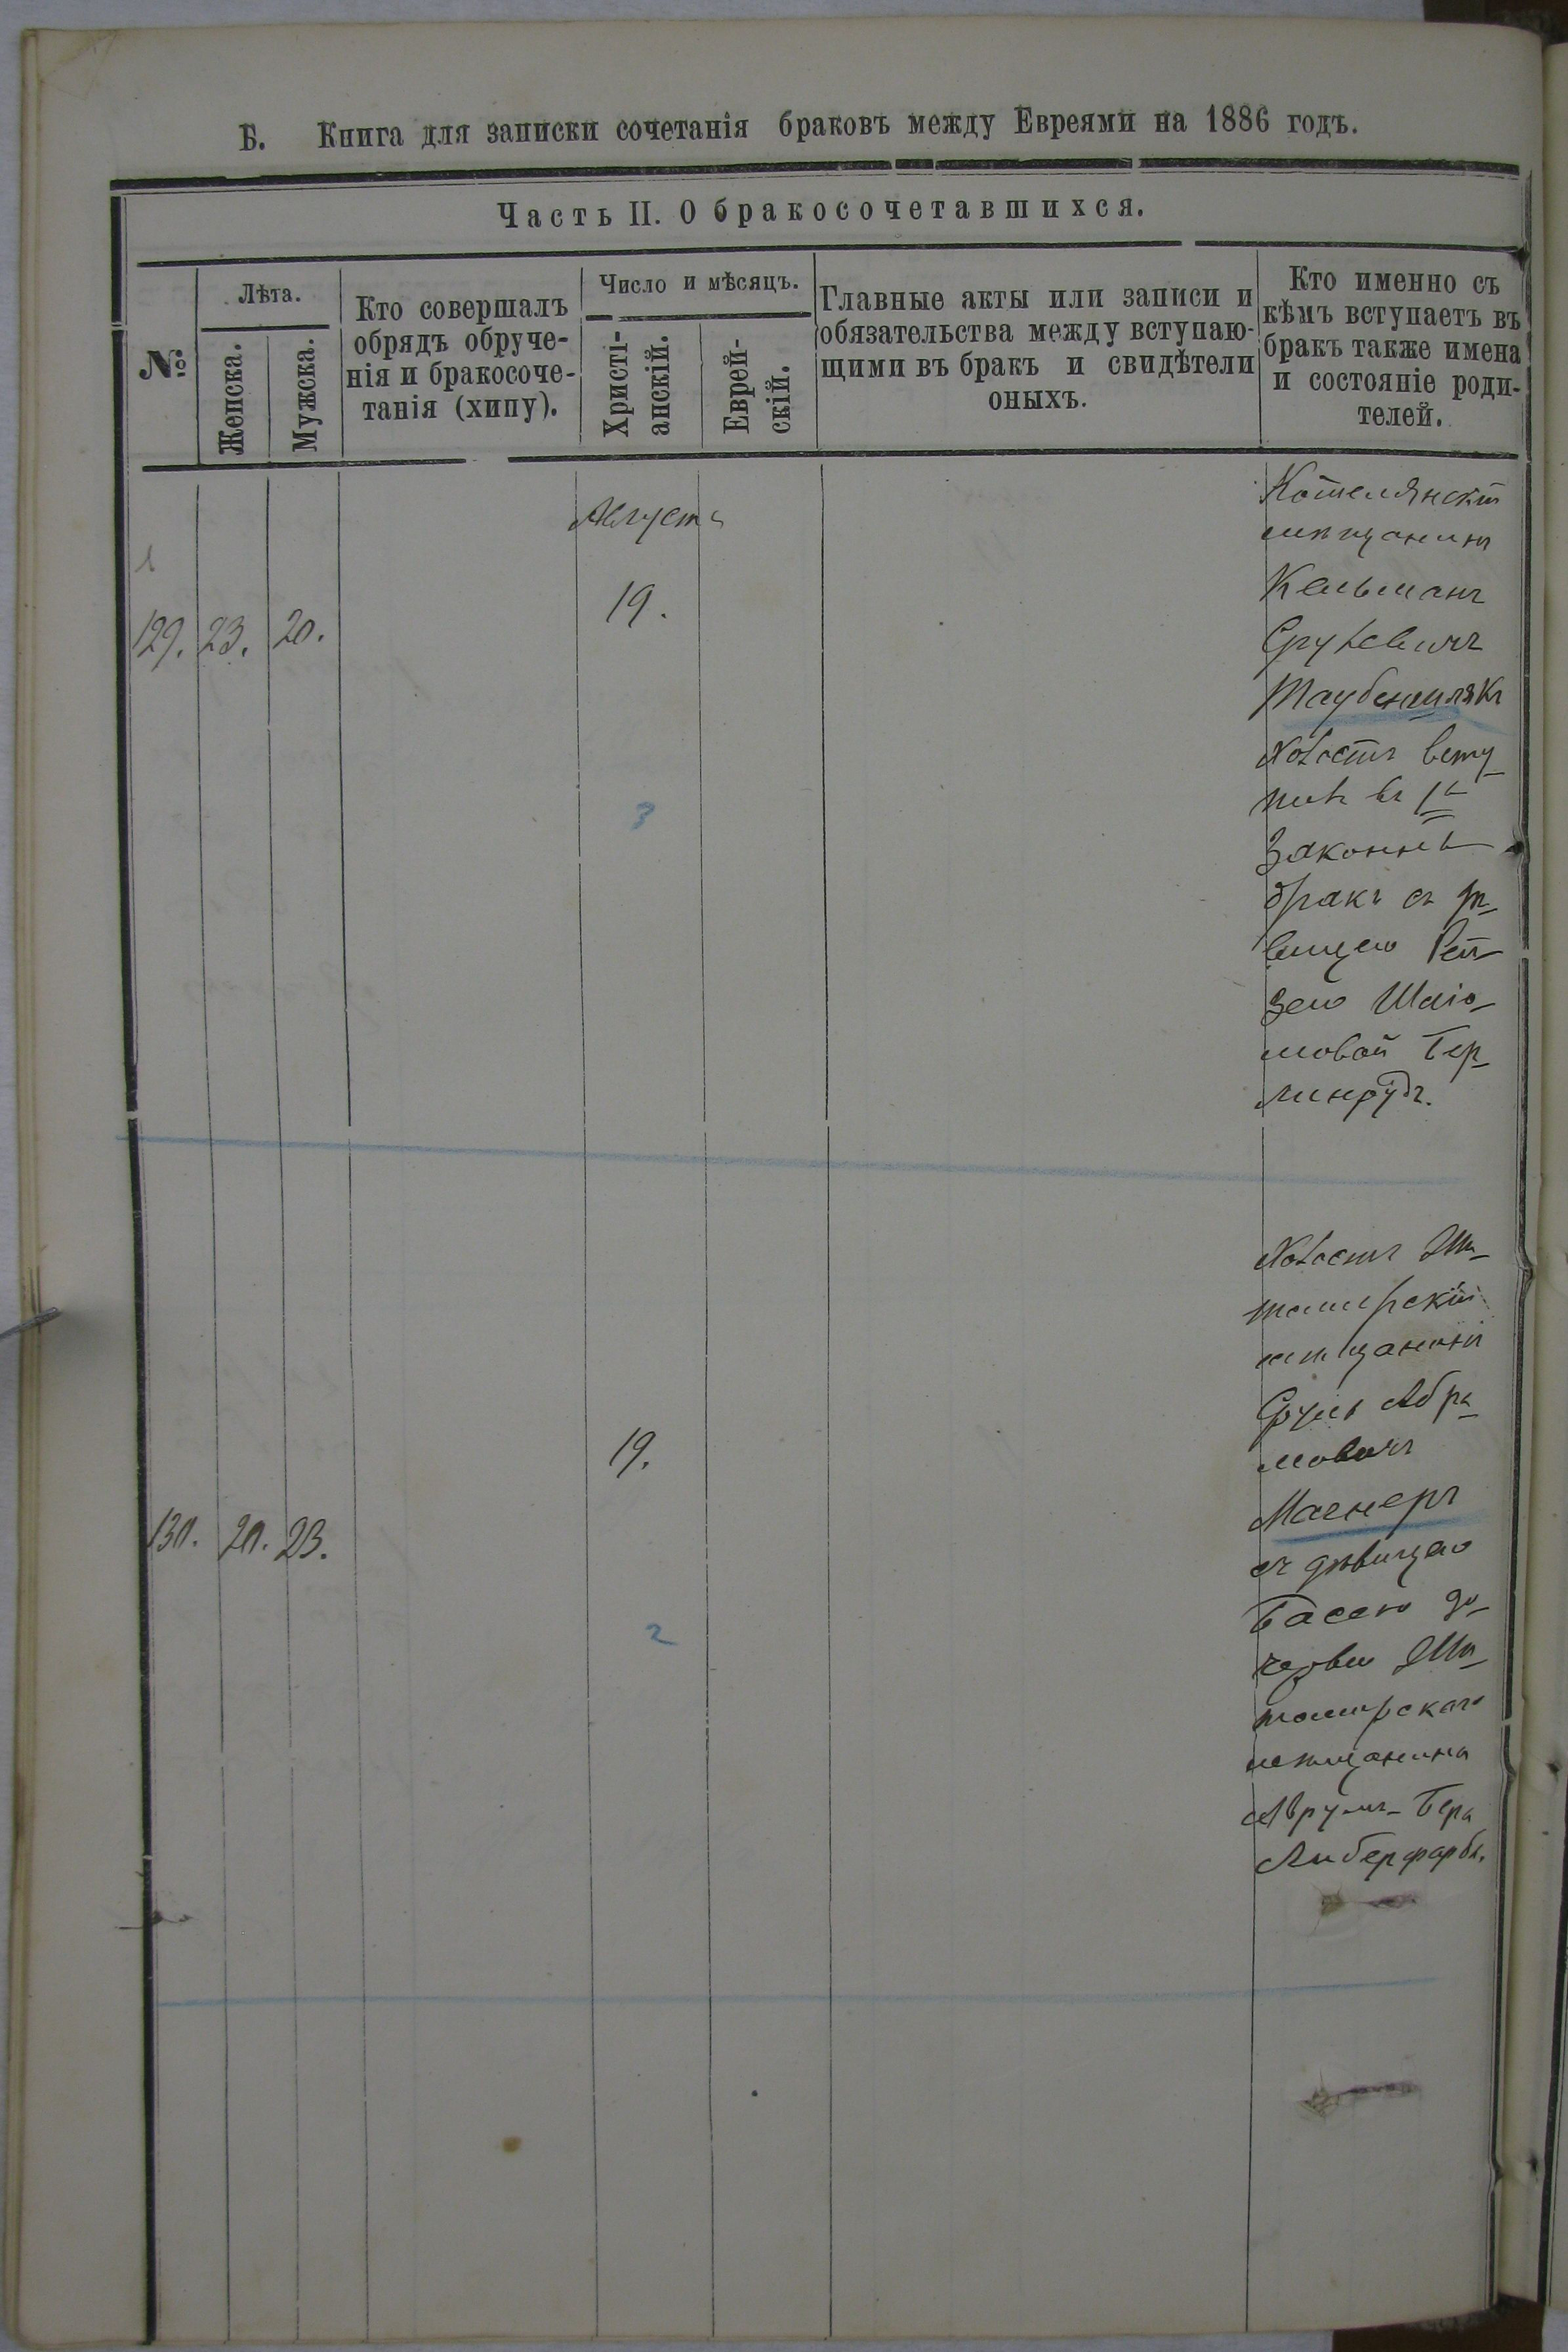 Б. Книга для записки сочетанія браковъ между Евреями на 1886 годъ.
Часть II. О бракосочетавшихся.
№
Лѣта.
Женска.
Мужска.
Кто совершалъ
обрядъ обруче-
нія и бракосоче-
танія (хипу).
Число и мѣсяцъ.
Христі-
анскій.
Еврей-
скій.
Главные акты или записи и
обязательства между вступаю-
щими въ бракъ и свидѣтели
оныхъ.
Кто именно съ
кѣмъ вступаетъ въ
бракъ также имена
и состояніе роди-
телей.
Августа
129. 23. 20.
19.
3
Котелянскій
мѣщанинъ
Кельманъ
Срулевичъ
Таубеншлякъ
Холостъ всту-
пилъ въ 1й
Законный
бракъ съ дѣ-
вицею Рей-
зею Шліо-
мовой Бер-
линрудъ.
130. 20. 23.
19.
2
Холостъ Жи-
томирскій
мѣщанинъ
Сруль Абра-
мовичъ
Магнеръ
съ дѣвицею
Басею до-
черью Жи-
томирскаго
мѣщанина
Аврумъ-Бера
Либерфарбъ.